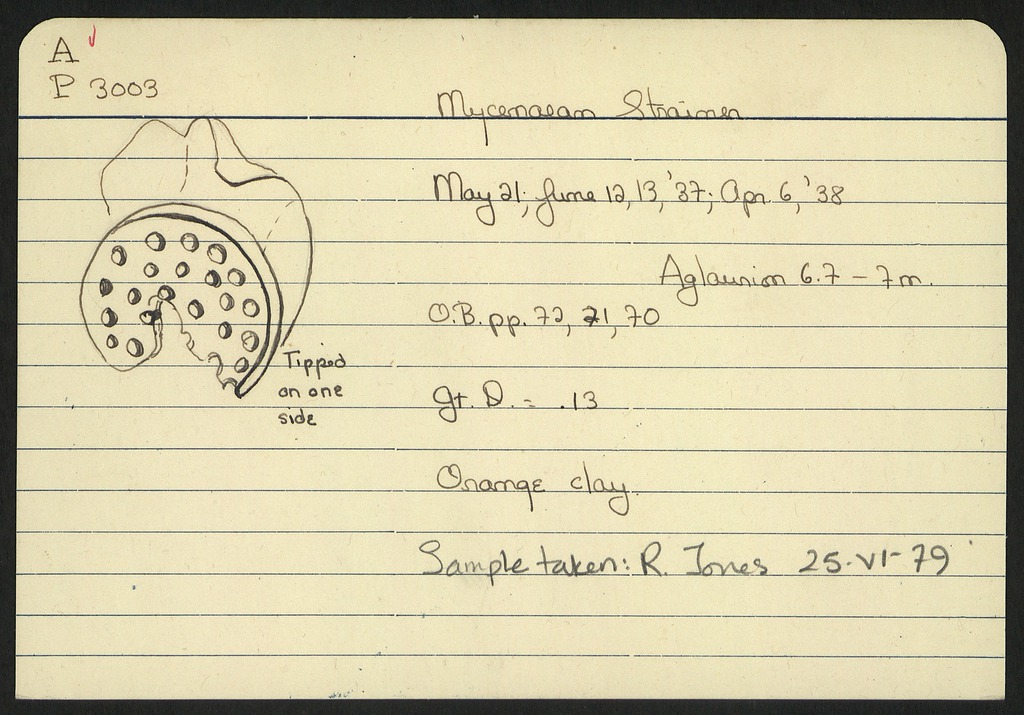 A
P 3003
Mycenaean Strainer
May 21; June 12, 13, '37; Apr. 6, '38
Aglaurion 6.7 - 7m.
O.B. pp. 72, 71, 70
Tipped
on one
side
Gt. D. = .13
Orange clay.
Sample taken: R. Jones 25-VI-79